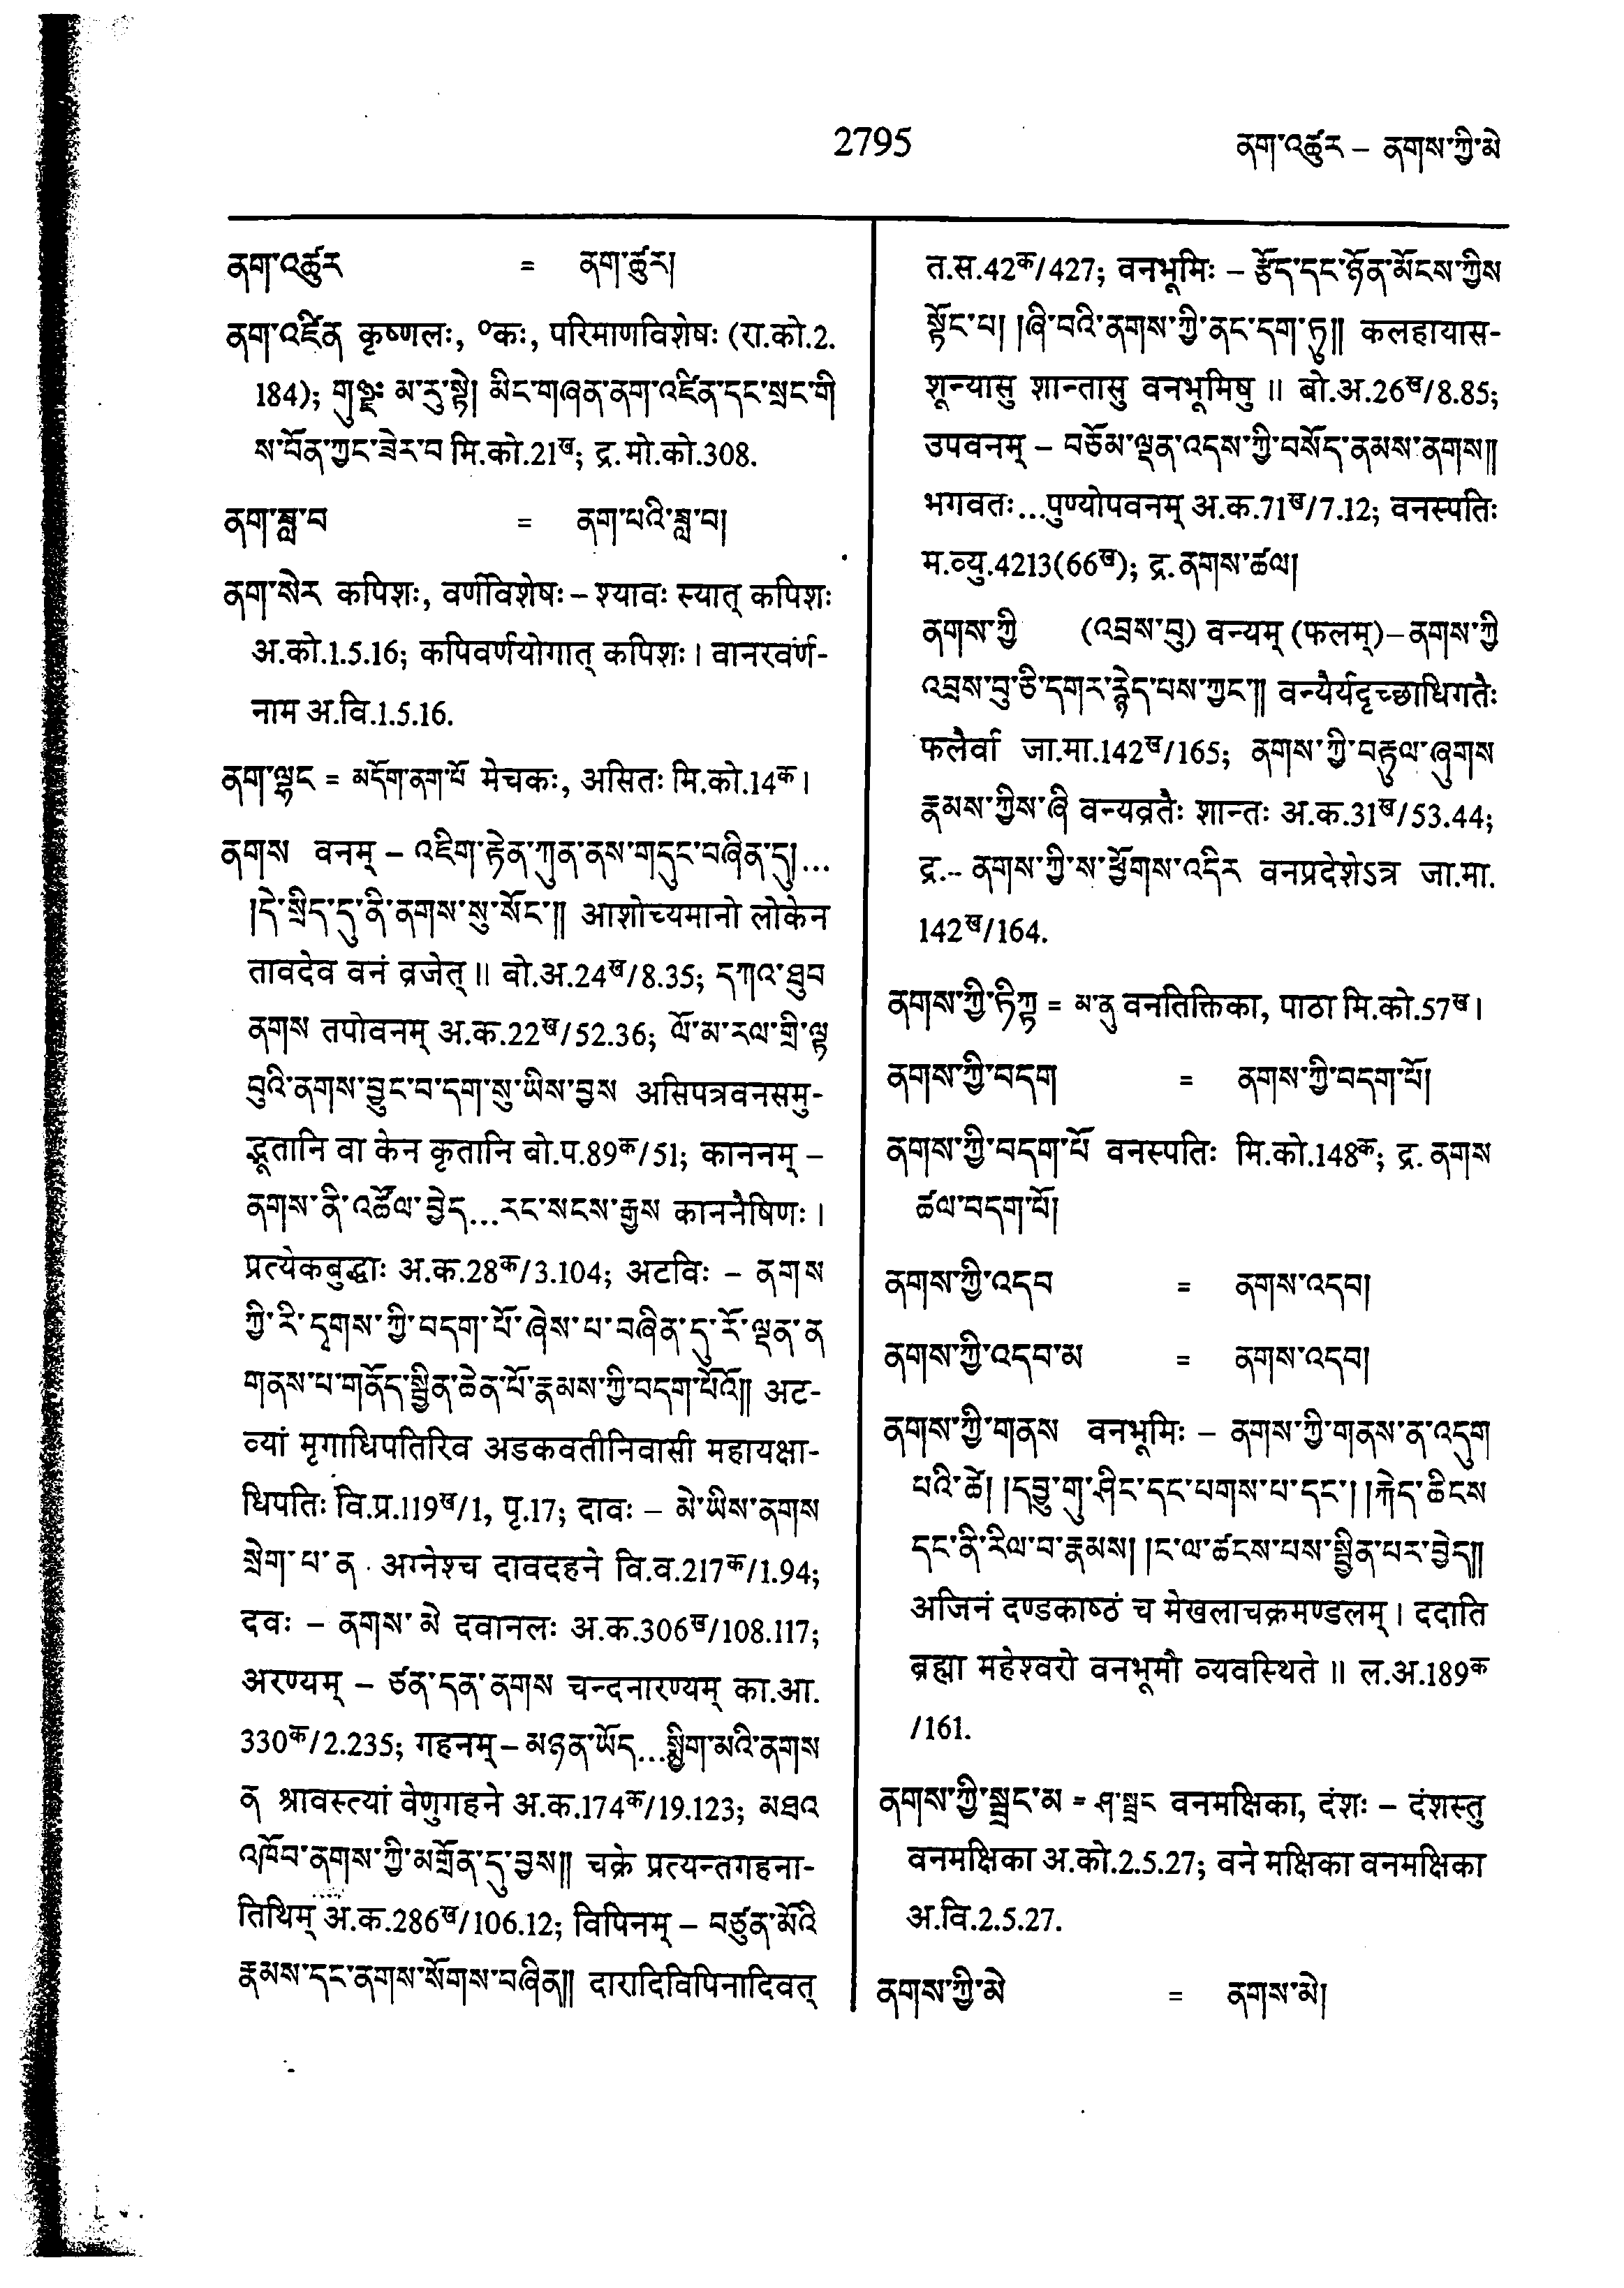 2795
ནག་འཚུར – ནགས་ཀྱི་མེ
ནག་འཚུར = ནག་ཚུར།
ནག་འཛིན कृष्णलः, ०कः, परिमाणविशेषः (रा.को.2.
184); གུཉྫཿ མ་རུ་སྟེ། མིང་གཞན་ནག་འཛིན་དང་སྲང་གི
ས་བོན་ཀྱང་ཟེར་བ मि.को.21ख; द्र. मो.को.308.
ནག་ཟླ་བ = ནག་པའི་ཟླ་བ།
ནག་སེར कपिशः, वर्णविशेषः – श्यावः स्यात् कपिशः
अ.को.1.5.16; कपिवर्णयोगात् कपिशः। वानरवर्ण-
नाम अ.वि.1.5.16.
ནག་ལྷང = མདོག་ནག་པོ मेचकः, असितः मि.को.14क।
ནགས वनम् – འཇིག་རྟེན་ཀུན་ནས་གདུང་བཞིན་དུ།...
།དེ་སྲིད་དུ་ནི་ནགས་སུ་སོང་།། आशोच्यमानो लोकेन
तावदेव वनं व्रजेत्॥ बो.अ.24ख/8.35; དཀའ་ཐུབ
ནགས तपोवनम् अ.क.22ख/52.36; ལོ་མ་རལ་གྲི་ལྟ
བུའི་ནགས་བྱུང་བ་དག་སུ་ཡིས་བྱས असिपत्रवनसमु-
द्भूतानि वा केन कृतानि बो.प.89क/51; काननम् –
ནགས་ནི་འཚོལ་བྱེད...རང་སངས་རྒྱས काननैषिणः।
प्रत्येकबुद्धाः अ.क.28क/3.104; अटविः – ནགས
ཀྱི་རི་དྭགས་ཀྱི་བདག་པོ་ཞེས་པ་བཞིན་དུ་རོ་ལྡན་ན
གནས་པ་གནོད་སྦྱིན་ཆེན་པོ་རྣམས་ཀྱི་བདག་པོའོ།། अट-
व्यां मृगाधिपतिरिव अडकवतीनिवासी महायक्षा-
धिपतिः वि.प्र.119ख/1, पृ.17; दावः – མེ་ཡིས་ནགས
སྲེག་པ་ན अग्नेश्च दावदहने वि.व.217क/1.94;
दवः – ནགས་མེ दवानलः अ.क.306ख/108.117;
अरण्यम् – ཙན་དན་ནགས चन्दनारण्यम् का.आ.
330क/2.235; गहनम् – མཉན་ཡོད...སྨྱིག་མའི་ནགས
ན श्रावस्त्यां वेणुगहने अ.क.174क/19.123; མཐའ
འཁོབ་ནགས་ཀྱི་མགྲོན་དུ་བྱས།། चक्रे प्रत्यन्तगहना-
तिथिम् अ.क.286ख/106.12; विपिनम् – བཙུན་མོའི
རྣམས་དང་ནགས་སོགས་བཞིན།། दारादिविपिनादिवत्
त.स.42क/427; वनभूमिः – རྩོད་དང་ཉོན་མོངས་ཀྱིས
སྟོང་པ། །ཞི་བའི་ནགས་ཀྱི་ནང་དག་ཏུ།། कलहायास-
शून्यासु शान्तासु वनभूमिषु॥ बो.अ.26ख/8.85;
उपवनम् – བཅོམ་ལྡན་འདས་ཀྱི་བསོད་ནམས་ནགས།།
भगवतः...पुण्योपवनम् अ.क.71ख/7.12; वनस्पतिः
म.व्यु.4213(66ख); द्र. ནགས་ཚལ།
ནགས་ཀྱི (འབྲས་བུ) वन्यम् (फलम्)– ནགས་ཀྱི
འབྲས་བུ་ཅི་དགར་རྙེད་པས་ཀྱང་།། वन्यैर्यदृच्छाधिगतैः
फलैर्वा जा.मा.142ख/165; ནགས་ཀྱི་བརྟུལ་ཞུགས
རྣམས་ཀྱིས་ཞི वन्यव्रतैः शान्तः अ.क.31ख/53.44;
द्र.– ནགས་ཀྱི་ས་ཕྱོགས་འདིར वनप्रदेशेऽत्र जा.मा.
142ख/164.
ནགས་ཀྱི་ཏིཀྟ = མ་ནུ वनतिक्तिका, पाठा मि.को.57ख।
ནགས་ཀྱི་བདག = ནགས་ཀྱི་བདག་པོ།
ནགས་ཀྱི་བདག་པོ वनस्पतिः मि.को.148क; द्र. ནགས
ཚལ་བདག་པོ།
ནགས་ཀྱི་འདབ = ནགས་འདབ།
ནགས་ཀྱི་འདབ་མ = ནགས་འདབ།
ནགས་ཀྱི་གནས वनभूमिः – ནགས་ཀྱི་གནས་ན་འདུག
པའི་ཚེ། །དབྱུ་གུ་ཤིང་དང་པགས་པ་དང་། །རྐེད་ཆིངས
དང་ནི་རིལ་བ་རྣམས། །ང་ལ་ཚངས་པས་སྦྱིན་པར་བྱེད།།
अजिनं दण्डकाष्ठं च मेखलाचक्रमण्डलम्। ददाति
ब्रह्मा महेश्वरो वनभूमौ व्यवस्थिते॥ ल.अ.189क
/161.
ནགས་ཀྱི་སྦྲང་མ = ཤ་སྦྲང वनमक्षिका, दंशः – दंशस्तु
वनमक्षिका अ.को.2.5.27; वने मक्षिका वनमक्षिका
अ.वि.2.5.27.
ནགས་ཀྱི་མེ = ནགས་མེ།